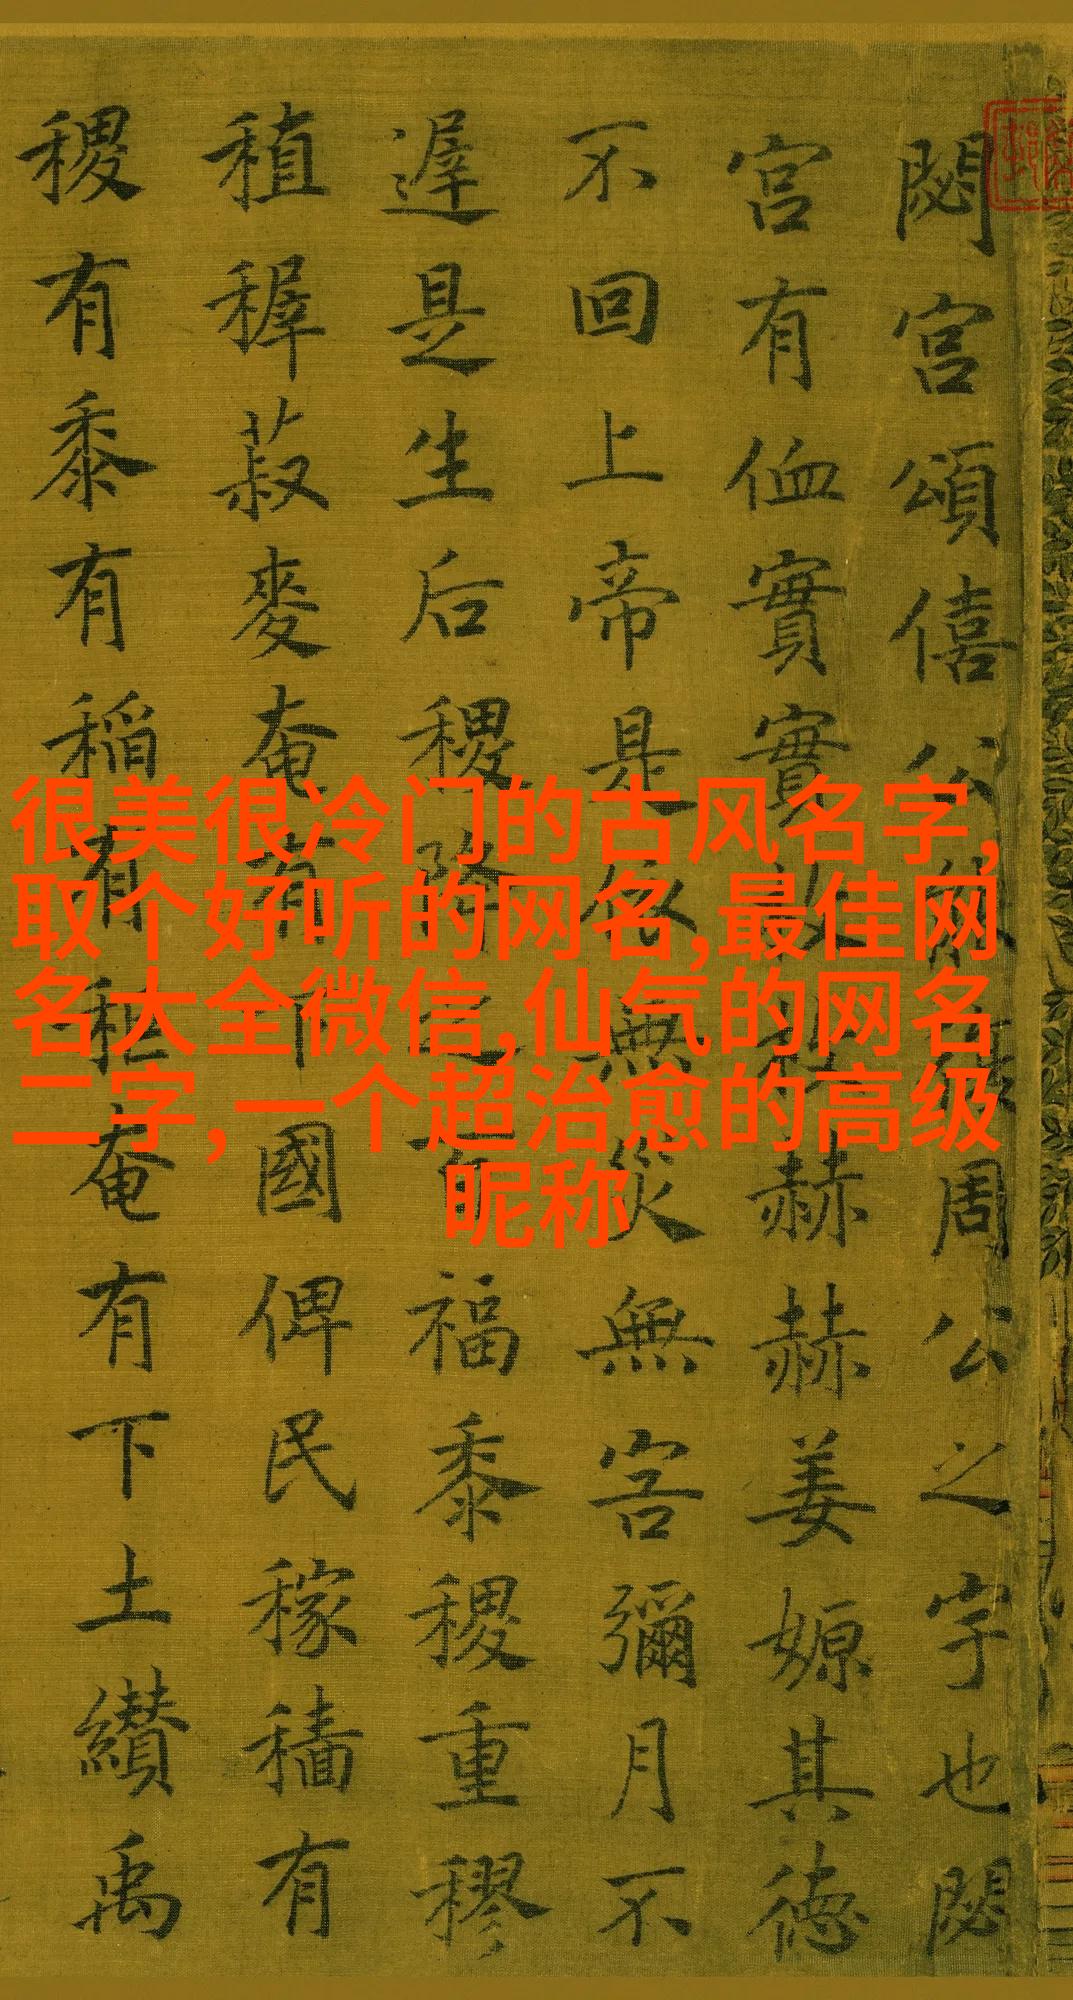 很美很冷门的古风名字,
取个好听的网名,最佳网
名大全微信,仙气的网名
二字, 一个超治愈的高级
昵称
閟宫頌僖公能復周公之宇也閟
宫有侐實實枚枚赫赫姜嫄其德
不回上帝是依無災無害彌月不
遲是生后稷降之百福黍稷重穋
稙穉菽麥奄有下國俾民稼穡有
稷有黍有稻有秬奄有下土纘禹